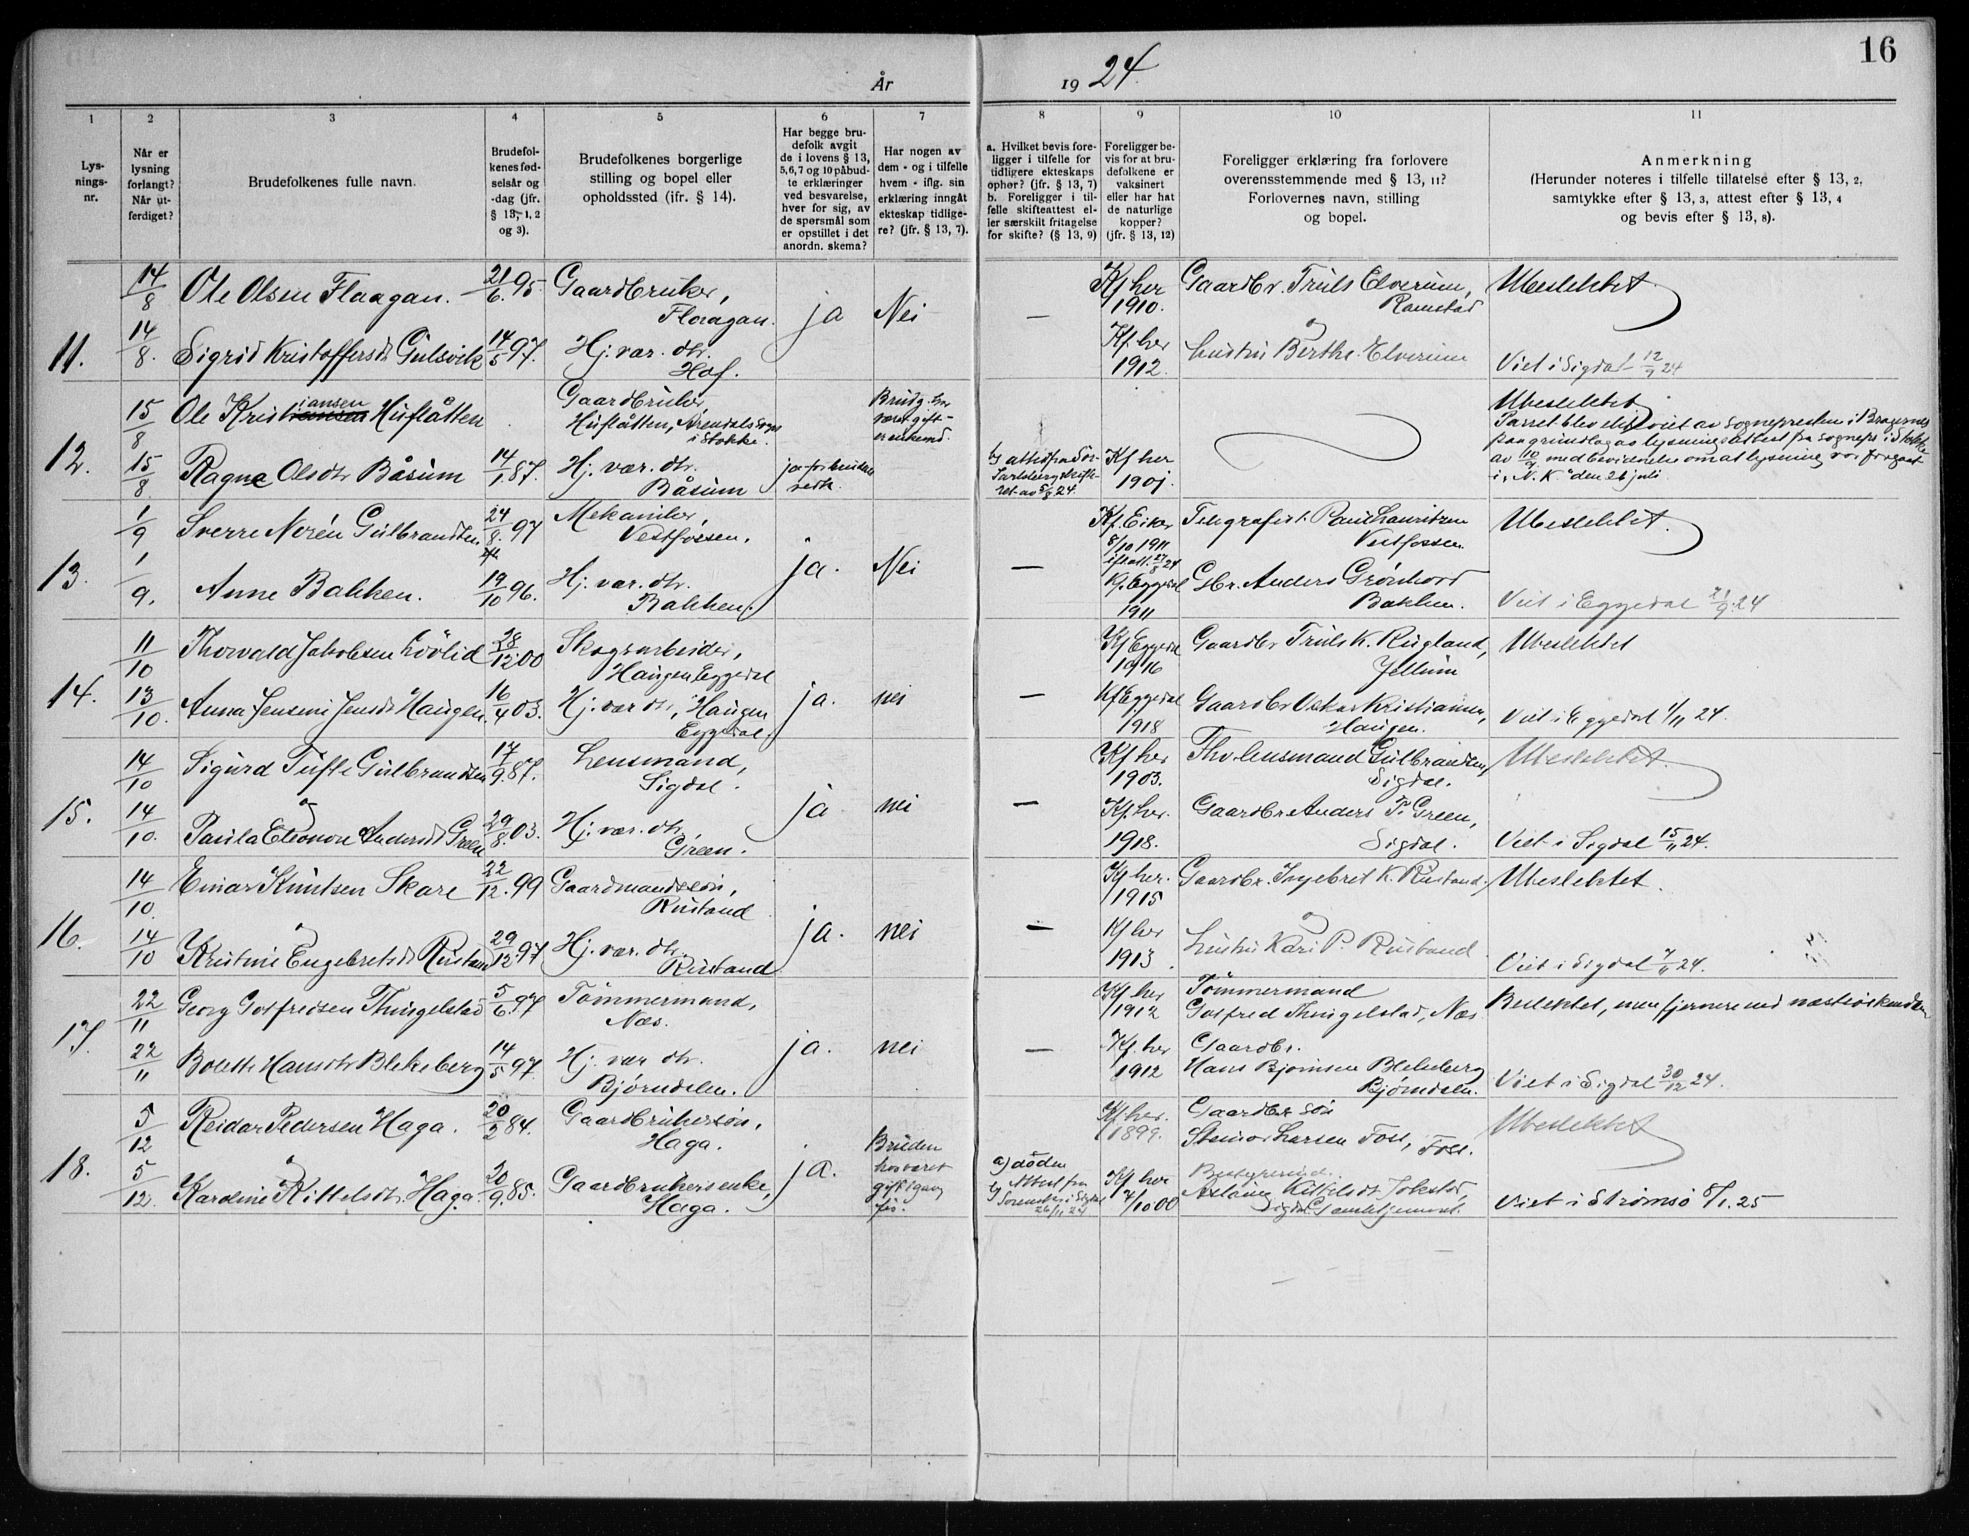 16
År 1924.
1 2 3 4 5 6 7 8 9 10 11
Lys-
nings-
nr.
Når er
lysning
forlangt?
Når ut-
ferdiget?
Brudefolkenes fulle navn.
Brudefol-
kenes fød-
selsår og
-dag (jfr.
§ 13, 1, 2
og 3).
Brudefolkenes borgerlige
stilling og bopel eller
opholdssted (ifr. § 14).
Har begge bru-
defolk avgit
de i lovens § 13,
5,6,7 og 10 påbud-
te erklæringer
ved besvarelse,
hver for sig, av
de spørsmål som
er opstillet i det
anordn. skema?
Har nogen av
dem - og i tilfelle
hvem - iflg. sin
erklæring inngåt
ekteskap tidlige-
re? (jfr. § 13, 7).
a. Hvilket bevis fore-
ligger i tilfelle for
tidligere ekteskaps
ophør? (jfr. § 13, 7)
b. Foreligger i til-
felle skifteattest el-
ler særskilt fritagelse
for skifte? (§ 13, 9)
Foreligger be-
vis for at bru-
defolkene er
vaksinert
eller har hat
de naturlige
kopper?
(jfr. § 13, 12)
Foreligger erklæring fra forlovere
overensstemmende med § 13, 11?
Forlovernes navn, stilling
og bopel.
Anmerkning
(Herunder noteres i tilfelle tillatelse efter § 13, 2,
samtykke efter § 13, 3, attest efter § 13, 4
og bevis efter § 13, 8).
14/8 Ole Olsen Flaagan. 21/6 95. Gaardbruker, Kf her Gaardbr. Truls Elverum, Ubeslektet
Flaagan. ja Nei — 1910. Ramstad
11. 14/8. Sigrid Kristoffersdtr Gulsvik 14/5 97. Hj. vær. dtr. Kf. her og
Hof. 1912. hustru Berthe Elverum Viet i Sigdal 12/9 24
15/8 Ole Kristiansen Huflåtten Gaardbruker Brudg. har Ubeslektet
Huflåtten, Arendals sogn været gift – Parret blev viet av sognepresten i Bragernes
i Stokke. er enkemd. paa grundlag av lysningsattest fra sognepr i Stokke
12. 15/8 Ragna Olsdtr Båsum 14/1 87. Hj. vær. dtr. Kf her av 10/9 med bevidnelse om at lysning var foregaat
Båsum 1901. i "N. K." den 26 juli.
1/9 Sverre Norén Gulbrandsen 24/8. 97 Mekaniker, Kf. Eiker Telegrafist. Paul Lauritzen Ubeslektet.
Vestfossen. 8/10 1911 Vestfossen.
ja. Nei — ifl att. 27/8 24
13. 1/9. Anne Bakken. 19/10 96. Hj. vær. dtr. Kf. Eggedal Gbr. Anders Grønhovd
Bakken. 1911 Bakken. Viet i Eggedal 21/9. 24
11/10 Thorvald Jakobsen Lövlid 28/12. 00 Skogsarbeider, Kf Eggedal Gaardbr Truls K. Rugland, Ubeslektet
Haugen, Eggedal 1916 Jellum
14. 13/10. Anna Jensine Jensdtr Haugen. 16/4 03. Hj. vær dtr, Haugen ja. nei — Kf Eggedal Gaardbr Oskar Kristiansen,
Eggedal. 1918 Haugen. Viet i Eggedal 1/11 24.
14/10 Sigurd Tufte Gulbrandsen 17/9. 87. Lensmand, Kf her Fhv. lensmand Gulbrandsen, Ubeslektet.
og Sigdal. 1903. Sigdal.
15. 14/10. Paula Eleonore Andersdtr Green 29/8. 03. Hj. vær. dtr, ja nei — Kf. her. Gaardbr Anders P. Green,
Green. 1918. Sigdal. Viet i Sigdal 15/11 24.
14/10. Einar Knutsen Skare 22/12. 99 Gaardmandssön, Kf her. Gaardbr. Ingebret K. Rustand, Ubeslektet.
og Rustand 1915
16. 14/10 Kristine Engebretsdtr Rustand 29/12 97 Hj. vær. dtr. ja. nei — Kf her og
Rustand 1913. hustru Kari P. Rustand Viet i Sigdal 7/11 24.
22/11 Georg Gotfredsen Thingelstad 5/6 97 Tömmermand, Kf her Tömmermand Beslektet, men fjernere end næstsöskendebarn
Næs. 1912 Gotfred Thingelstad, Næs
17. 22/11 Bolette Hansdtr Blekeberg 14/5 97. Hj. vær dtr. ja. nei — Kf. her Gaardbr.
Bjørndalen. 1912 Hans Bjørnsen Blekeberg
Bjørndalen. Viet i Sigdal 30/12 24.
5/12 Reidar Pedersen Haga. 20/2 84. Gaardbrukersön, Kf. her. Gaardbr sön Ubeslektet
og Haga. 1899. Steinar Larsen Foss, Foss.
Bruden a) döden
18. 5/12. Karoline Kittelsdtr. Haga. 20/9. 85. Gaardbrukersenke, ja. har været b) Attest fra Kf her
Haga. gift 1 gang før. 26/11 24 7/10 00 Aslaug Kittelsdtr. Jokstad, Viet i Strømsø 8/1. 25